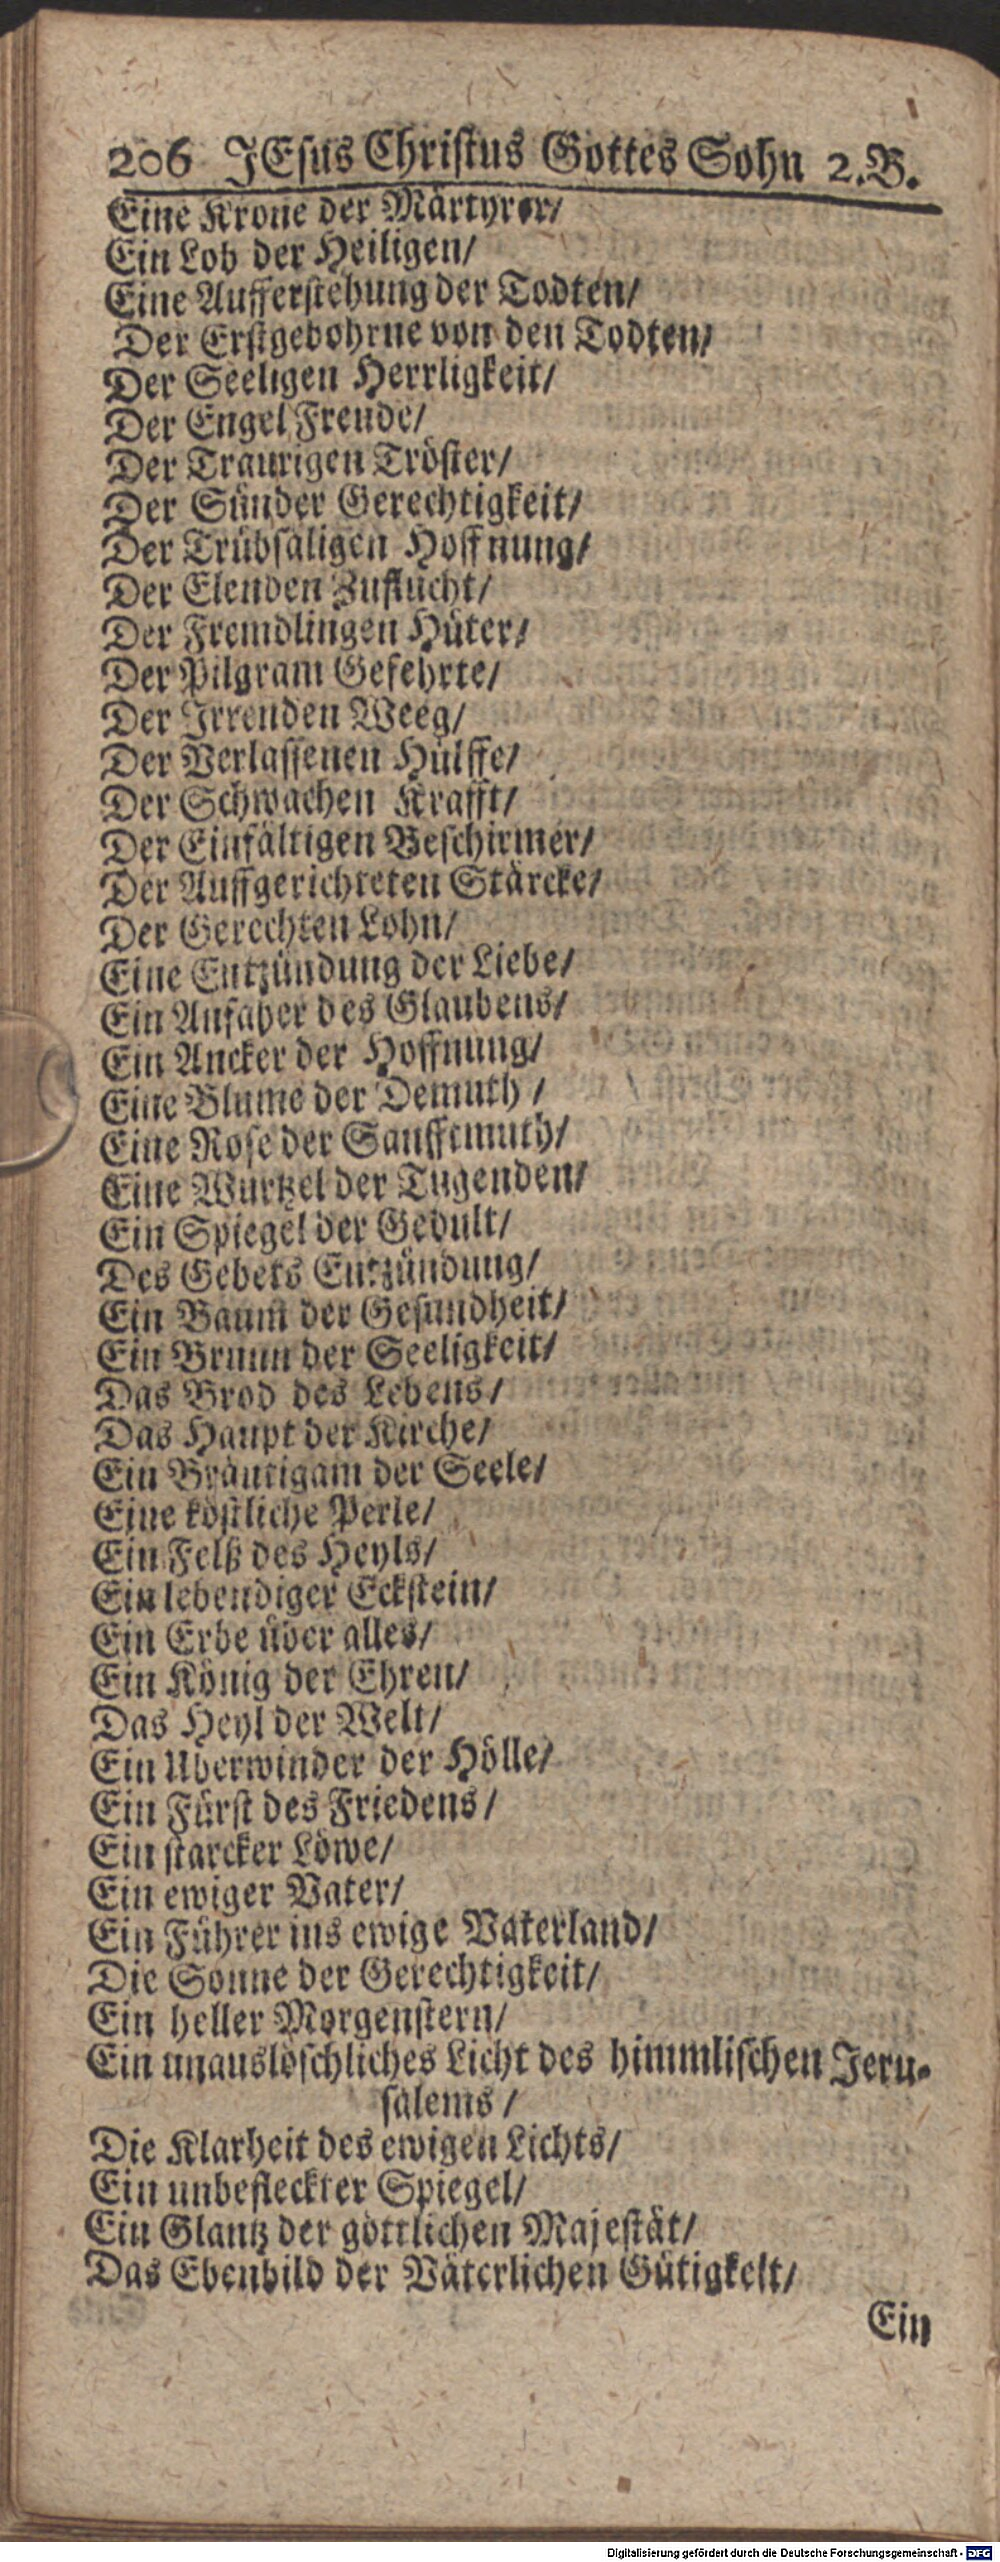 206 JEsus Christus Gottes Sohn 2.B.
Eine Krone der Märtyrer/
Ein Lob der Heiligen/
Eine Aufferstehung der Todten/
Der Erstgebohrne von den Todten/
Der Seeligen Herrligkeit/
Der Engel Freude/
Der Traurigen Tröster/
Der Sünder Gerechtigkeit/
Der Trübsäligen Hoffnung/
Der Elenden Zuflucht/
Der Fremdlingen Hüter/
Der Pilgram Gefehrte/
Der Irrenden Weeg/
Der Verlassenen Hülffe/
Der Schwachen Krafft/
Der Einfältigen Beschirmer/
Der Auffgerichteten Stärcke/
Der Gerechten Lohn/
Eine Entzündung der Liebe/
Ein Anfaher des Glaubens/
Ein Ancker der Hoffnung/
Eine Blume der Demuth /
Eine Rose der Sanfftmuth/
Eine Wurtzel der Tugenden/
Ein Spiegel der Gedult/
Des Gebets Entzündung/
Ein Baum der Gesundheit/
Ein Brunn der Seeligkeit/
Das Brod des Lebens/
Das Haupt der Kirche/
Ein Bräutigam der Seele/
Eine köstliche Perle/
Ein Felß des Heyls/
Ein lebendiger Eckstein/
Ein Erbe über alles/
Ein König der Ehren/
Das Heyl der Welt/
Ein Uberwinder der Hölle/
Ein Fürst des Friedens/
Ein starcker Löwe/
Ein ewiger Vater/
Ein Führer ins ewige Vaterland/
Die Sonne der Gerechtigkeit/
Ein heller Morgenstern/
Ein unauslöschliches Licht des himmlischen Jeru-
salems /
Die Klarheit des ewigen Lichts/
Ein unbefleckter Spiegel/
Ein Glantz der göttlichen Majestät/
Das Ebenbild der Väterlichen Gütigkeit/
Ein
Digitalisierung gefördert durch die Deutsche Forschungsgemeinschaft - DFG